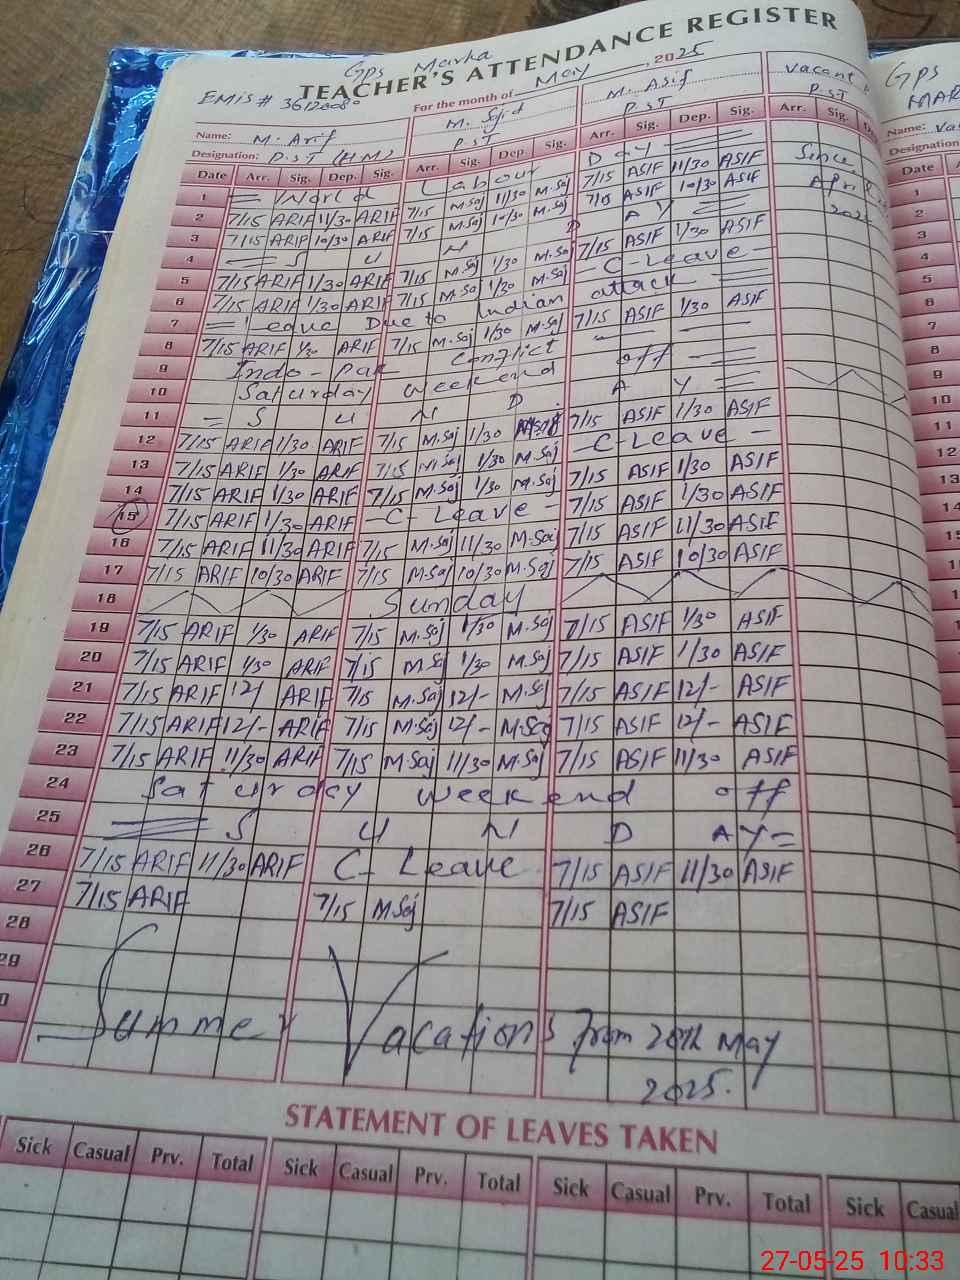 Gps Marka
TEACHER'S ATTENDANCE REGISTER
EMIS # For the month of May, 2025
Name: M. Arif M. Sajid M. Asif Vacant
Designation: P.S.T (H.M) P.S.T P.S.T P.S.T
Date Arr. Sig. Dep. Sig. Arr. Sig. Dep. Sig. Arr. Sig. Dep. Sig. Arr. Sig.
1 World Labour Day Since
2 7/15 ARIF 11/30 ARIF 7/15 M.Saj 11/30 M.Saj 7/15 ASIF 11/30 ASIF April
3 7/15 ARIF 10/30 ARIF 7/15 M.Saj 10/30 M.Saj 7/15 ASIF 10/30 ASIF
4 S U N D A Y
5 7/15 ARIF 1/30 ARIF 7/15 M.Saj 1/30 M.Saj 7/15 ASIF 1/30 ASIF
6 7/15 ARIF 1/30 ARIF 7/15 M.Saj 1/30 M.Saj - C-Leave -
7 Leave Due to Indian attack
8 7/15 ARIF 1/30 ARIF 7/15 M.Saj 1/30 M.Saj 7/15 ASIF 1/30 ASIF
9 Indo - Pak Conflict
10 Saturday weekend off
11 S U N D A Y
12 7/15 ARIF 1/30 ARIF 7/15 M.Saj 1/30 7/15 ASIF 1/30 ASIF
13 7/15 ARIF 1/30 ARIF 7/15 M.Saj 1/30 M.Saj - C-Leave -
14 7/15 ARIF 1/30 ARIF 7/15 M.Saj 1/30 M.Saj 7/15 ASIF 1/30 ASIF
15 7/15 ARIF 1/30 ARIF - C- Leave - 7/15 ASIF 1/30 ASIF
16 7/15 ARIF 11/30 ARIF 7/15 M.Saj 11/30 M.Saj 7/15 ASIF 11/30 ASIF
17 7/15 ARIF 10/30 ARIF 7/15 M.Saj 10/30 M.Saj 7/15 ASIF 10/30 ASIF
18 Sunday
19 7/15 ARIF 1/30 ARIF 7/15 M.Saj 1/30 M.Saj 7/15 ASIF 1/30 ASIF
20 7/15 ARIF 1/30 ARIF 7/15 M.Saj 1/30 M.Saj 7/15 ASIF 1/30 ASIF
21 7/15 ARIF 12/- ARIF 7/15 M.Saj 12/- M.Saj 7/15 ASIF 12/- ASIF
22 7/15 ARIF 12/- ARIF 7/15 M.Saj 12/- M.Saj 7/15 ASIF 12/- ASIF
23 7/15 ARIF 11/30 ARIF 7/15 M.Saj 11/30 M.Saj 7/15 ASIF 11/30 ASIF
24 Saturday weekend off
25 S U N D A Y
26 7/15 ARIF 11/30 ARIF C- Leave 7/15 ASIF 11/30 ASIF
27 7/15 ARIF 7/15 M.Saj 7/15 ASIF
28
29
Summer Vacations from 28th May
2025.
STATEMENT OF LEAVES TAKEN
Sick Casual Prv. Total Sick Casual Prv. Total Sick Casual Prv. Total Sick Casual
Gps
Name:
Designation
Date
1
2
3
4
5
6
7
8
9
10
11
12
13
27-05-25 10:33